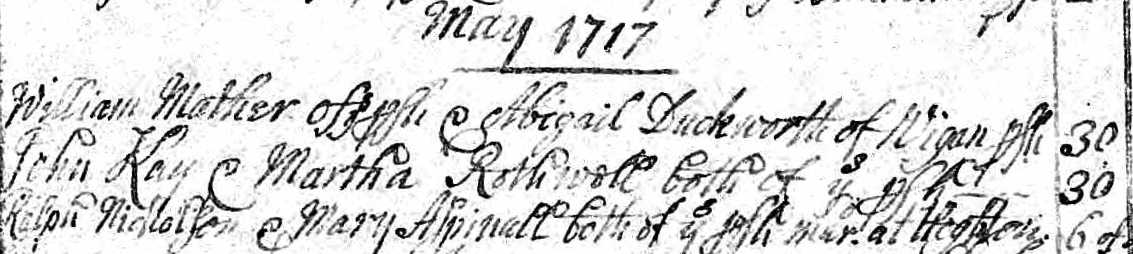 May 1717
William Mather of ys psh & Abigail Duckworth of Wigan psh 30
John Kay & Martha Rothwell both of ys psh 30
Ralph Nicholson & Mary Aspinall both of ys psh mar. at 6